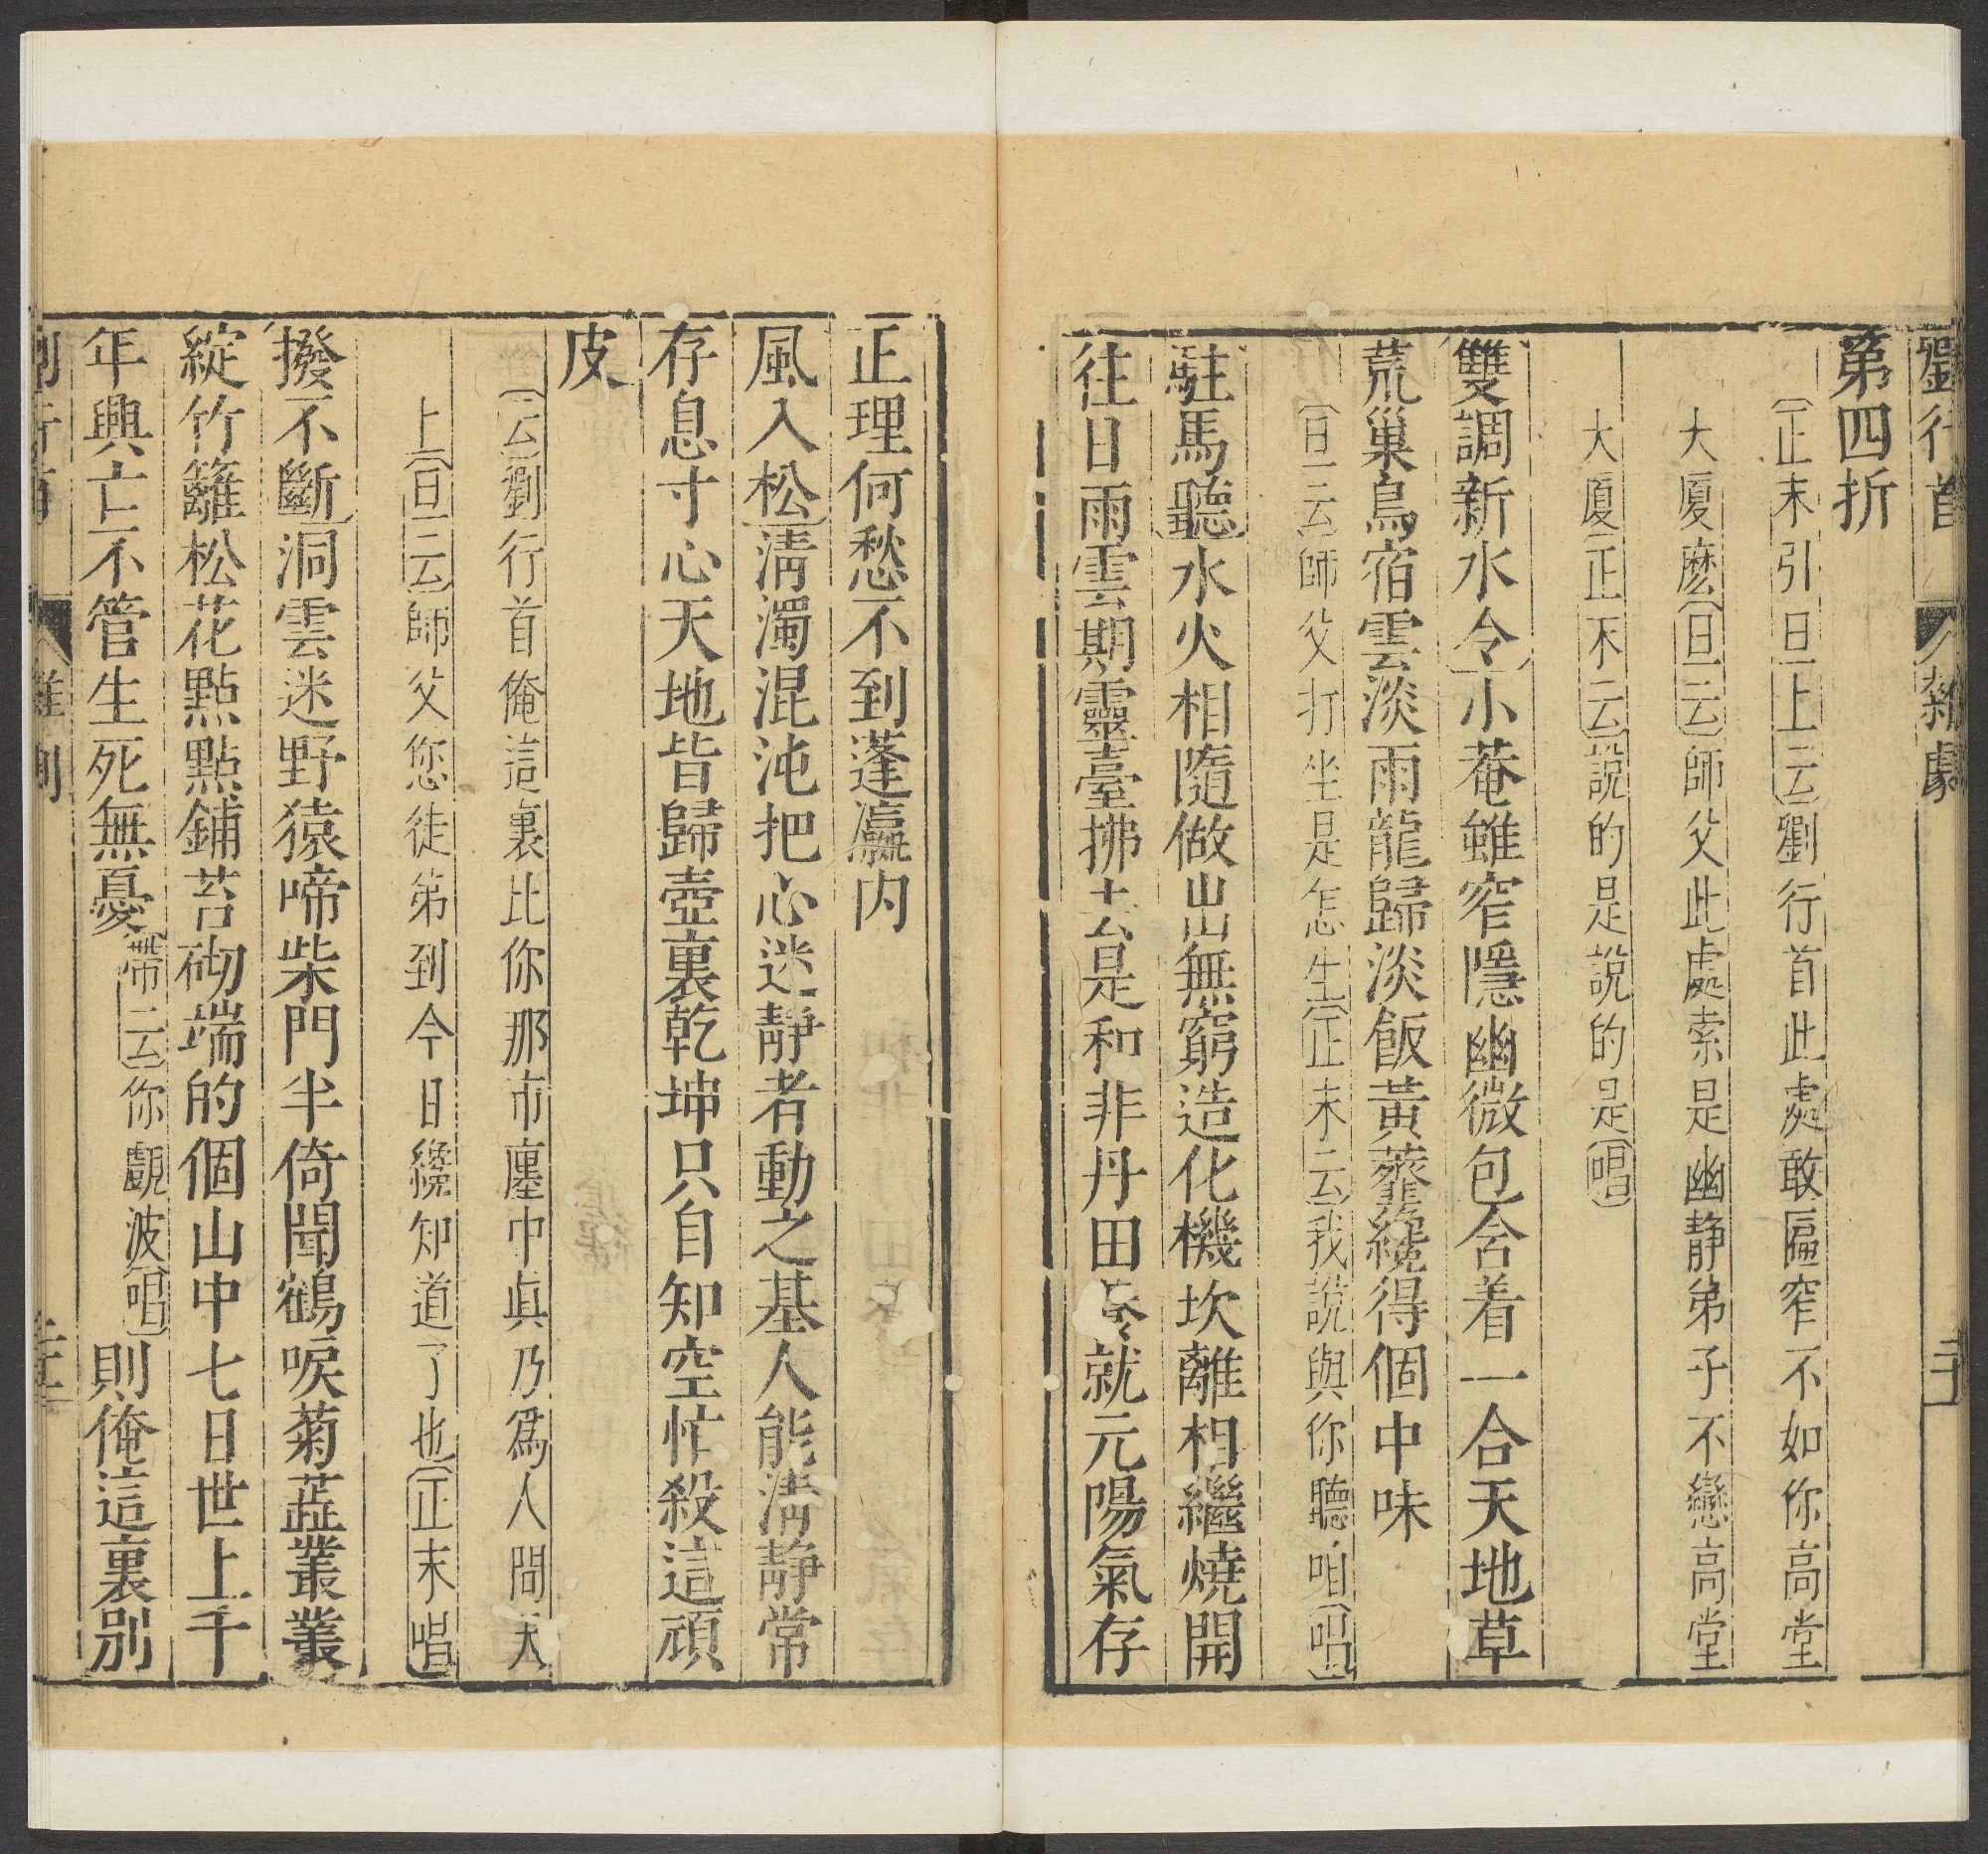 劉行首 雜劇
第四折
正末引旦上云劉行首此處敢匾窄不如你高堂
大厦麽旦云師父此處索是幽靜弟子不戀高堂
大厦正末云説的是説的是唱
雙調新水令小菴雖窄隱幽微包含着一合天地草
荒巢鳥宿雲淡雨龍歸淡飯黃虀纔得個中味
旦云師父打坐是怎生正末云我說與你聽咱唱
駐馬聽水火相隨做出無窮造化機坎離相繼燒開
往日雨雲期靈臺拂去是和非丹田養就元陽氣存
正理何愁不到蓬瀛内
風入松淸濁混沌把心迷靜者動之基人能淸靜常
存息寸心天地皆歸壺裏乾坤只自知空忙殺這頑
皮
云劉行首俺這裏比你那市廛中眞乃爲人間天
上旦云師父您徒弟到今日纔知道了也正末唱
撥不斷洞雲迷野猿啼柴門半倚聞鶴唳菊蕋叢叢
綻竹籬松花點點鋪苔砌端的個山中七日世上千
年興亡不管生死無憂帶云你覷波唱則俺這裏別